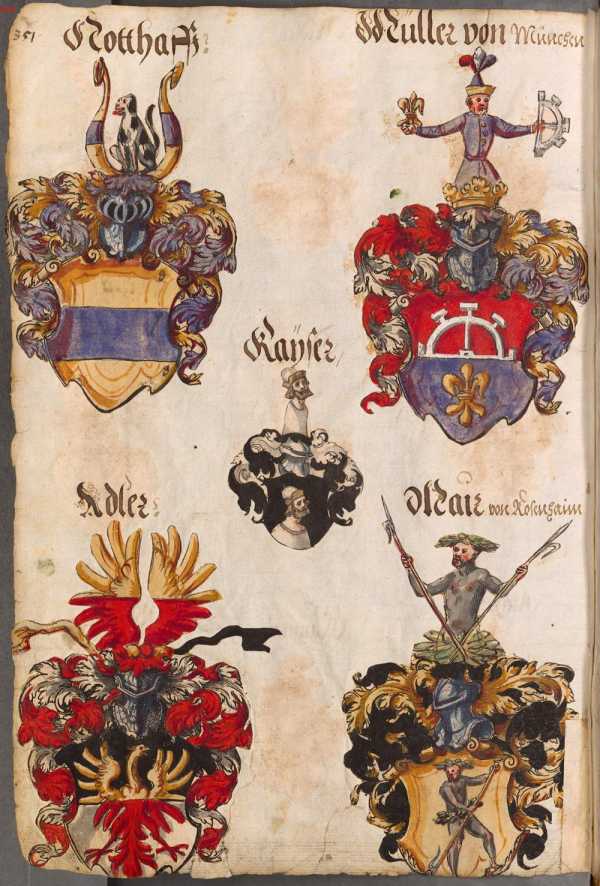 351
Notthafft
Müller von München
Kayser
Adler
Mair von Rosenhaim